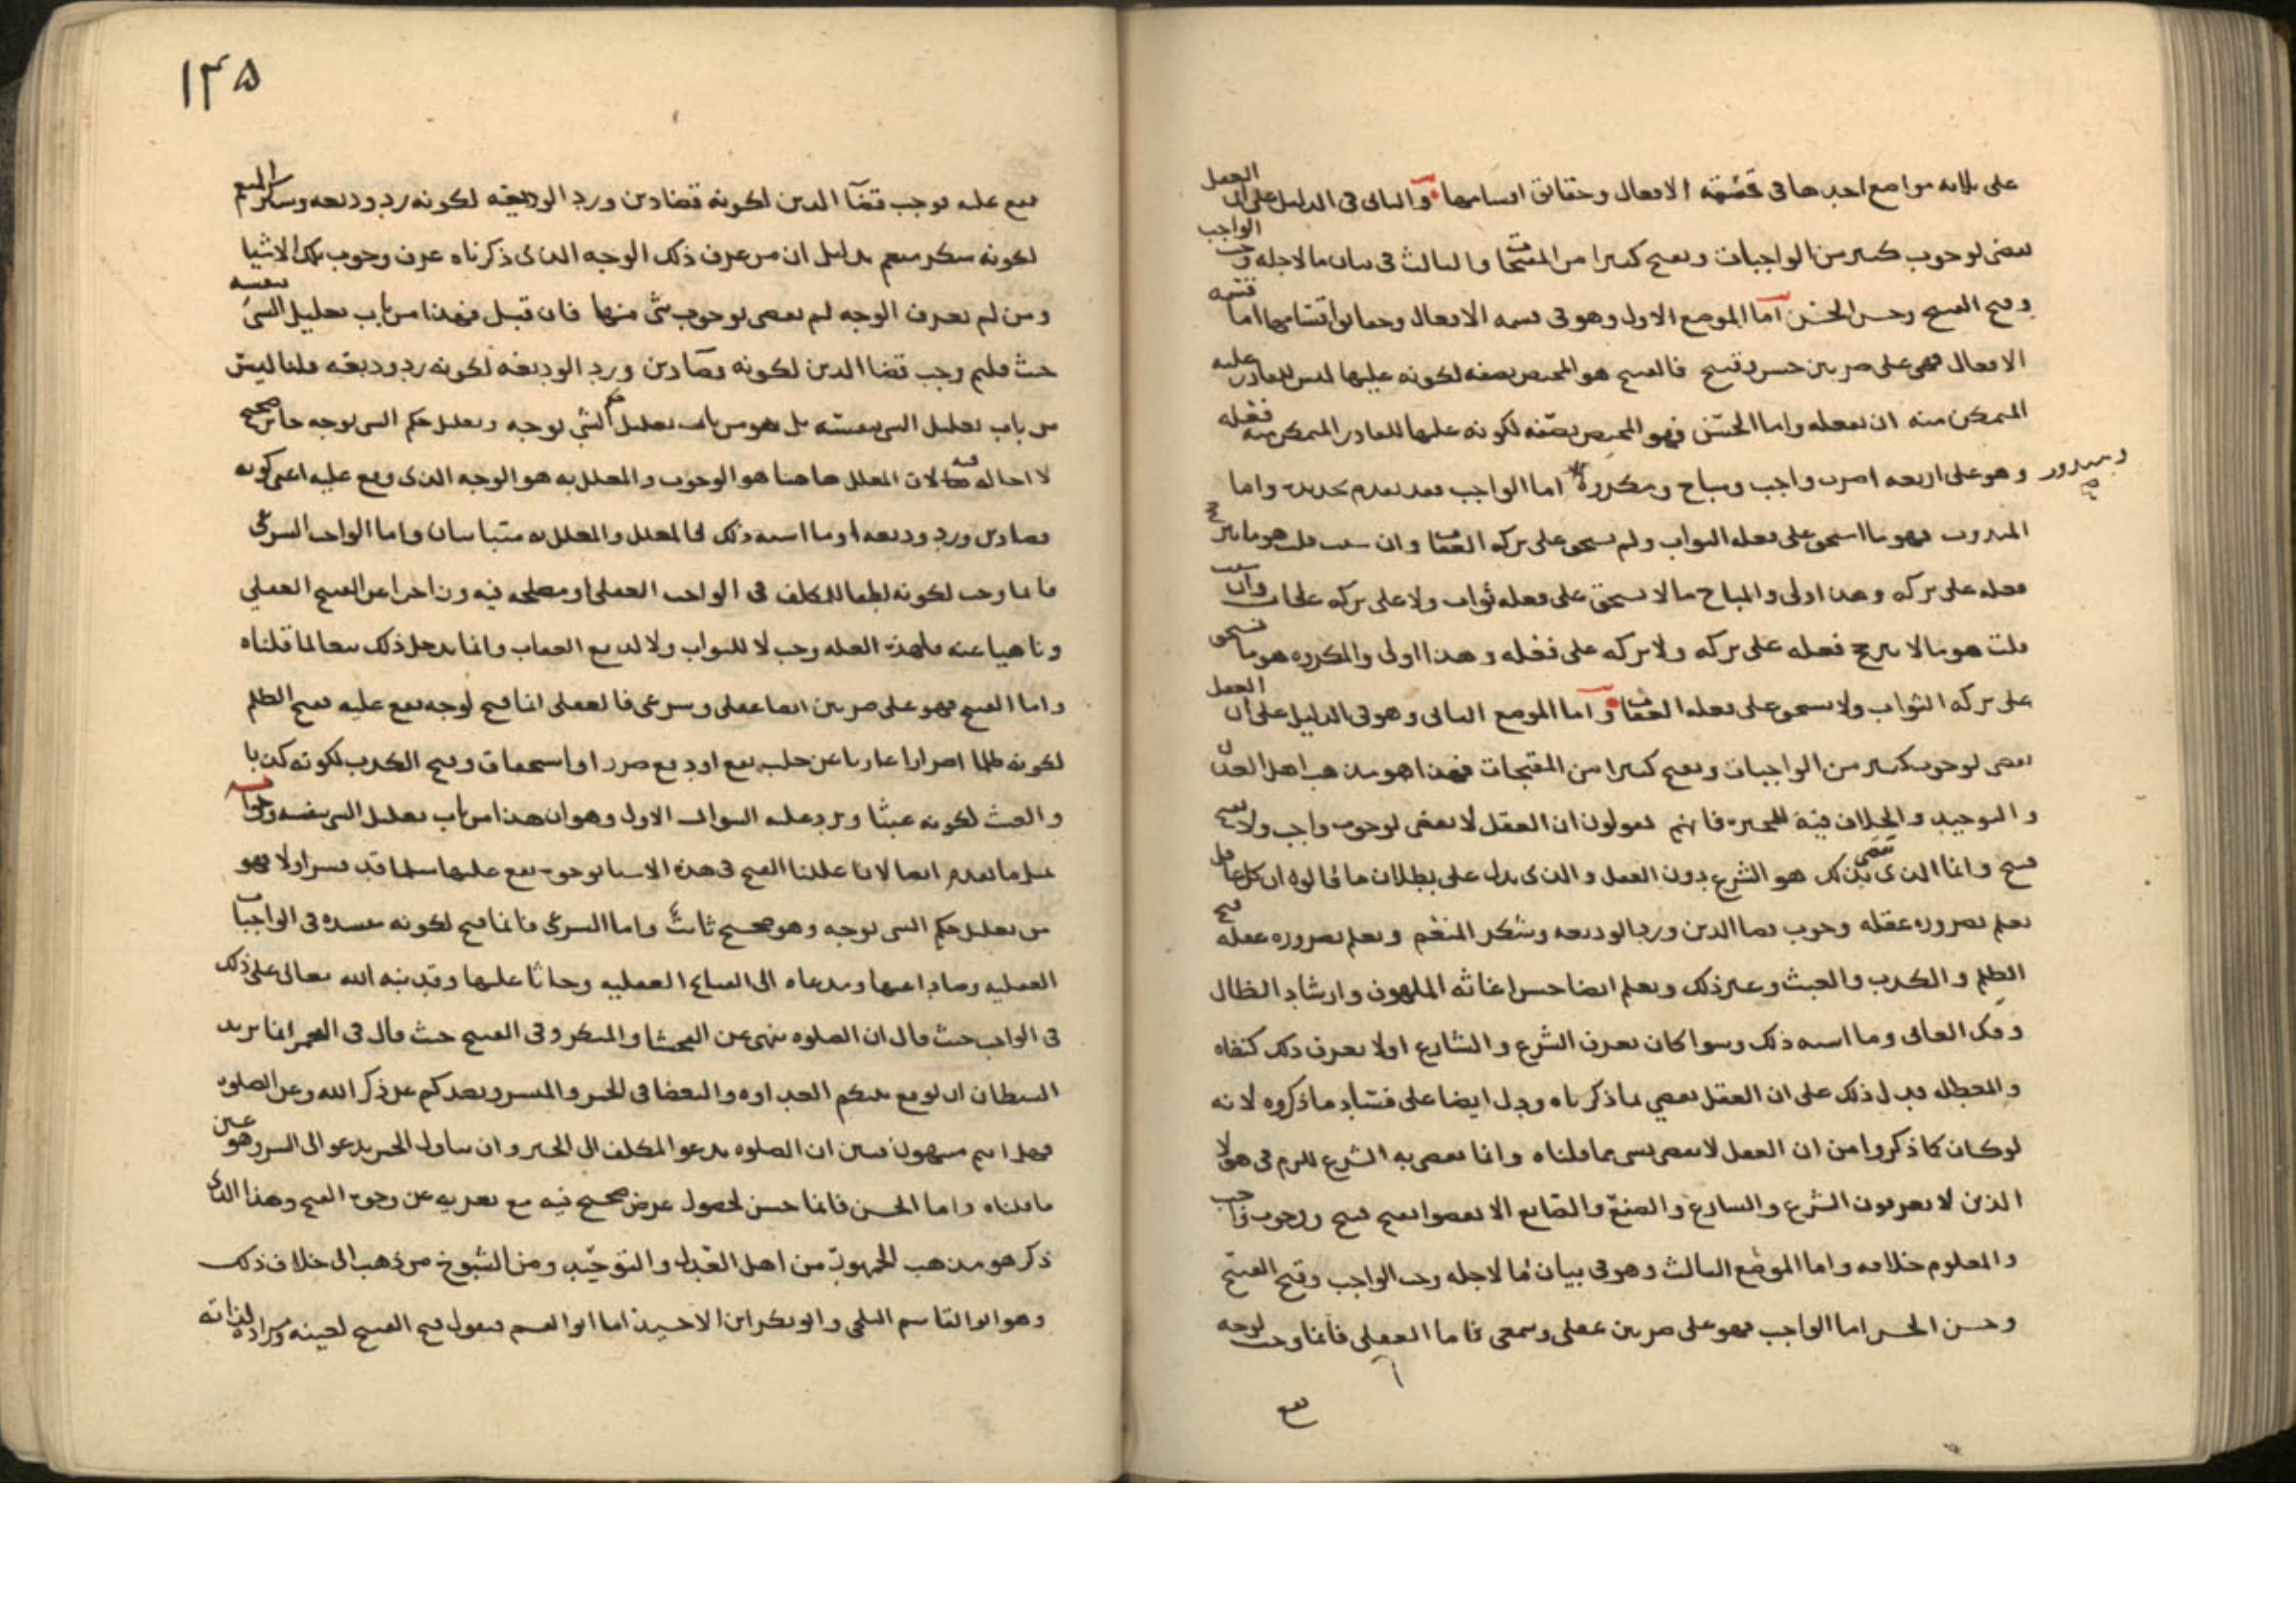 على ثلاثة مواضع احدها فى قسمة الافعال وحقائق اقسامها والثانى فى الدليل على ان العقل
يقضى لوجوب كثير من الواجبات وبقبح كثير من المقبحات والثالث فى بيان ما لاجله وجب الواجب
وقبح القبيح وحسن الحسن اما الموضع الاول وهو فى قسمة الافعال وحقائق اقسامها اما قسمة
الافعال فهى على ضربين حسن وقبيح فالقبيح هو المختص بصفة لكونه عليها ليس للقادر عليه
المتمكن منه ان يفعله واما الحسن فهو المختص بصفة لكونه عليها للقادر المتمكن منه فعله
وهو على اربعة اضرب واجب ومندوب ومباح ومكروه اما الواجب فقد تقدم تحديده واما
المندوب فهو ما استحق على فعله الثواب ولم يستحق على تركه العقاب وان شئت قلت هو ما ترجح
فعله على تركه وهذا اولى والمباح ما لا يستحق على فعله ثواب ولا على تركه عقاب وان شئت
قلت هو ما لا يترجح فعله على تركه ولا تركه على فعله وهذا اولى والمكروه هو ما يستحق
على تركه الثواب ولا يستحق على فعله العقاب واما الموضع الثانى وهو فى الدليل على ان العقل
يقضى لوجوب كثير من الواجبات وبقبح كثيرا من المقبحات فهذا هو مذهب اهل العدل
والتوحيد والخلاف فيه للمجبرة فانهم يقولون ان العقل لا يقضى لوجوب واجب ولا بقبح
قبيح وانما الذى يقضى بذلك هو الشرع دون العقل والذى يدل على بطلان ما قالوه ان كل عاقل
يعلم بضرورة عقله وجوب قضا الدين ورد الوديعه وشكر المنعم ويعلم بضرورة عقله قبح
الظلم والكذب والعبث وغير ذلك ويعلم ايضا حسن اغاثه الملهوف وارشاد الظال
وفك العانى وما اشبه ذلك وسوا كان يعرف الشرع والشارع او لا يعرف ذلك كنفاه
والمعطله فدل ذلك على ان العقل يقضي بما ذكرناه ودل ايضا على فساد ما ذكروه لانه
لو كان كما ذكروا من ان العقل لا يقضى بشى مما قلناه وانما يقضى به الشرع للزم فى هولا
الذين لا يعرفون الشرع والشارع والصنع والصانع الا يقضوا بقبح قبيح ووجوب واجب
والمعلوم خلافه واما الموضع الثالث وهو فى بيان ما لاجله وجب الواجب وقبح القبيح
وحسن الحسن اما الواجب فهو على ضربين عقلى وسمعى فاما العقلى فانما وجب لوجه
يقع
١٤٥
يقع عليه فوجب قضآ الدين لكونه قضا دين ورد الوديعه لكونه رد وديعه وشكر المنعم
لكونه شكر منعم بدليل ان من عرف ذلك الوجه الذى ذكرناه عرف وجوب تلك الاشيا
ومن لم يعرف الوجه لم يقض لوجوب شى منها فان قيل فهذا من باب تعليل الشى بنفسه
حيث قلتم وجب قضا الدين لكونه قضا دين ورد الوديعه لكونه رد وديعه قلنا ليس
من باب تعليل الشى بنفسه بل هو من باب تعليل حكم الشي لوجه وتعليل حكم الشى لوجه جائز صحيح
لا احاله فيه لان المعلل هاهنا هو الوجوب والمعلل به هو الوجه الذى وقع عليه اعنى كونه
قضا دين ورد وديعه او ما اشبه ذلك فالمعلل والمعلل به متباينان واما الواجب الشرعى
فانما وجب لكونه لطفا للمكلف فى الواجب العقلى او مصلحه فيه وزاجرا عن القبيح العقلي
وناهيا عنه فلهذه العله وجب لا للثواب ولا لدفع العقاب وانما يدخل ذلك تبعا لما قلناه
واما القبيح فهو على ضربين ايضا عقلى وشرعى فالعقلى انما قبح لوجه يقع عليه فقبح الظلم
لكونه ظلما اضرارا عاريا عن جلب نفع او دفع ضرر او استحقاق وقبح الكذب لكونه كذبا
والعبث لكونه عبثا ويرد عليه السوال الاول وهو ان هذا من باب تعليل الشى بنفسه وجوابه
مثل ما تقدم ايضا لانا عللنا القبح فى هذه الاشيا لوجوه يقع عليها مثلما قد فسر اولا فهو
من تعليل حكم الشى لوجه وهو صحيح ثابت واما الشرعى فانما قبح لكونه مفسده فى الواجبات
العقليه وصادا عنها ومدعاه الى القبائح العقليه وحاثا عليها وقد نبه الله تعالى على ذلك
فى الواجب حيث قال ان الصلوه تنهى عن الفحشا والمنكر وفى القبيح حيث قال فى الخمر انما يريد
الشيطان ان يوقع بينكم العداوه والبغضا فى الخمر والميسر ويصدكم عن ذكر الله وعن الصلوه
فهل انتم منتهون فبين ان الصلوه تدعو المكلف الى الخير وان تناول الخمر يدعو الى الشر وهو عين
ما قلناه واما الحسن فانما حسن لحصول غرض صحيح فيه مع تعريه عن وجوه القبح وهذا الذى
ذكر هو مذهب الجمهور من اهل العدل والتوحيد ومن الشيوخ من ذهب الى خلاف ذلك
وهو ابو القاسم البلخى وابو بكر ابن الاخشيد اما ابو القسم فيقول قبح القبيح لعينه ومراده لذاته